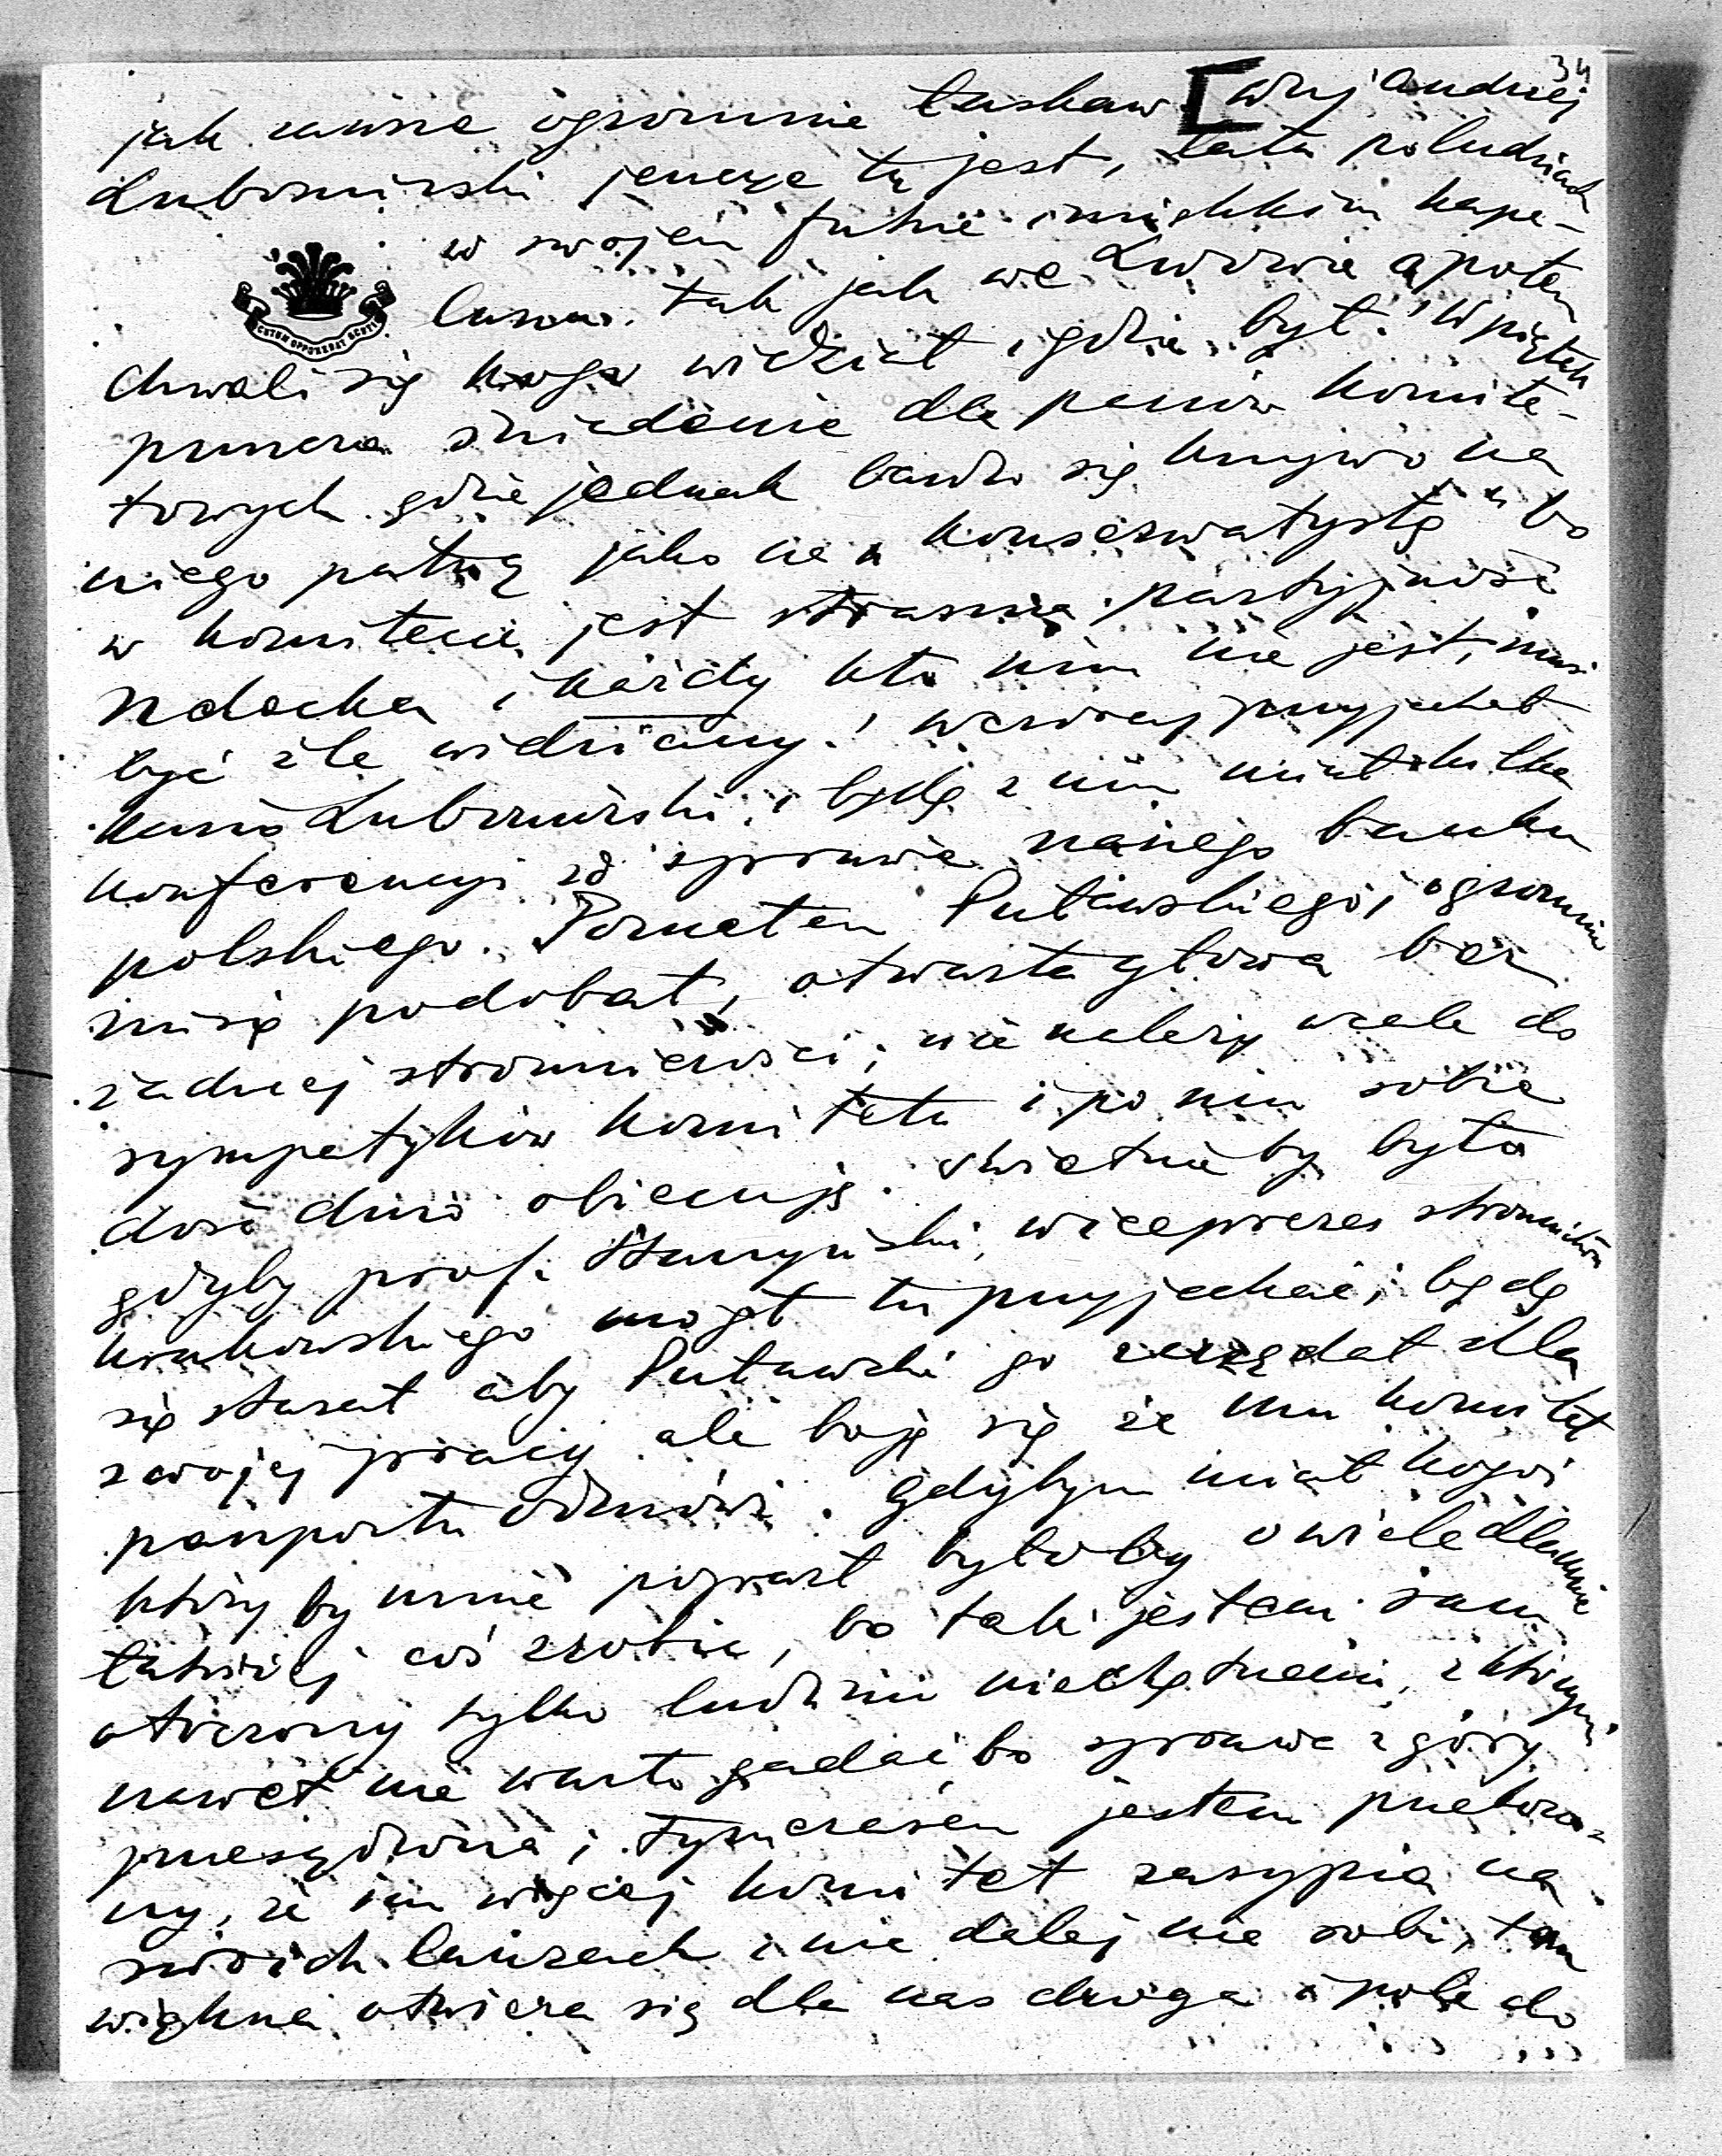 34
jak zawsze ogromnie łaskaw. [Wuj Andrzej
Lubomirski jeszcze tu jest, lata po ludziach
w swojem futrze i miękkim kape-
luszu tak jak we Lwowie a potem
chwali się kogo widział i gdzie był. W piątek
śniadanie dla panów komite-
towych gdzie jednak bardzo się krzywo na
niego patrzą jako na „konserwatystę" bo
w komitecie jest straszna partyjność
Ndecka i każdy kto nim nie jest, musi
być źle widziany! Wczoraj przyjechał
Lubomirski i będę z nim miał kilka
konferencyi w sprawie naszego banku
polskiego. Poznałem Puławskiego, ogromnie
mi się podobał, otwarta głowa bez
żadnej stronniczości; nie należy wcale do
sympatyków komitetu i po nim sobie
dość dużo obiecuję. Świetnie by było
gdyby prof. wiceprezes stronnictwa
krakowskiego mógł tu przyjechać; będę
się starał aby Puławski go zażądał dla
swojej pracy ale boję się że mu komitet
paszportu odmówi. Gdybym miał kogoś
który by mnie poparł byłoby o wiele dla mnie
łatwiej coś zrobić, bo tak jestem sam
otoczony tylko ludźmi niechętnemi, z którymi
nawet nie warto gadać bo sprawa z góry
przesądzona; tymczasem jestem przekona-
ny, że im więcej komitet zasypia na
swoich laurach i nic dalej nie robi, tem
większa otwiera się dla nas droga i pole do